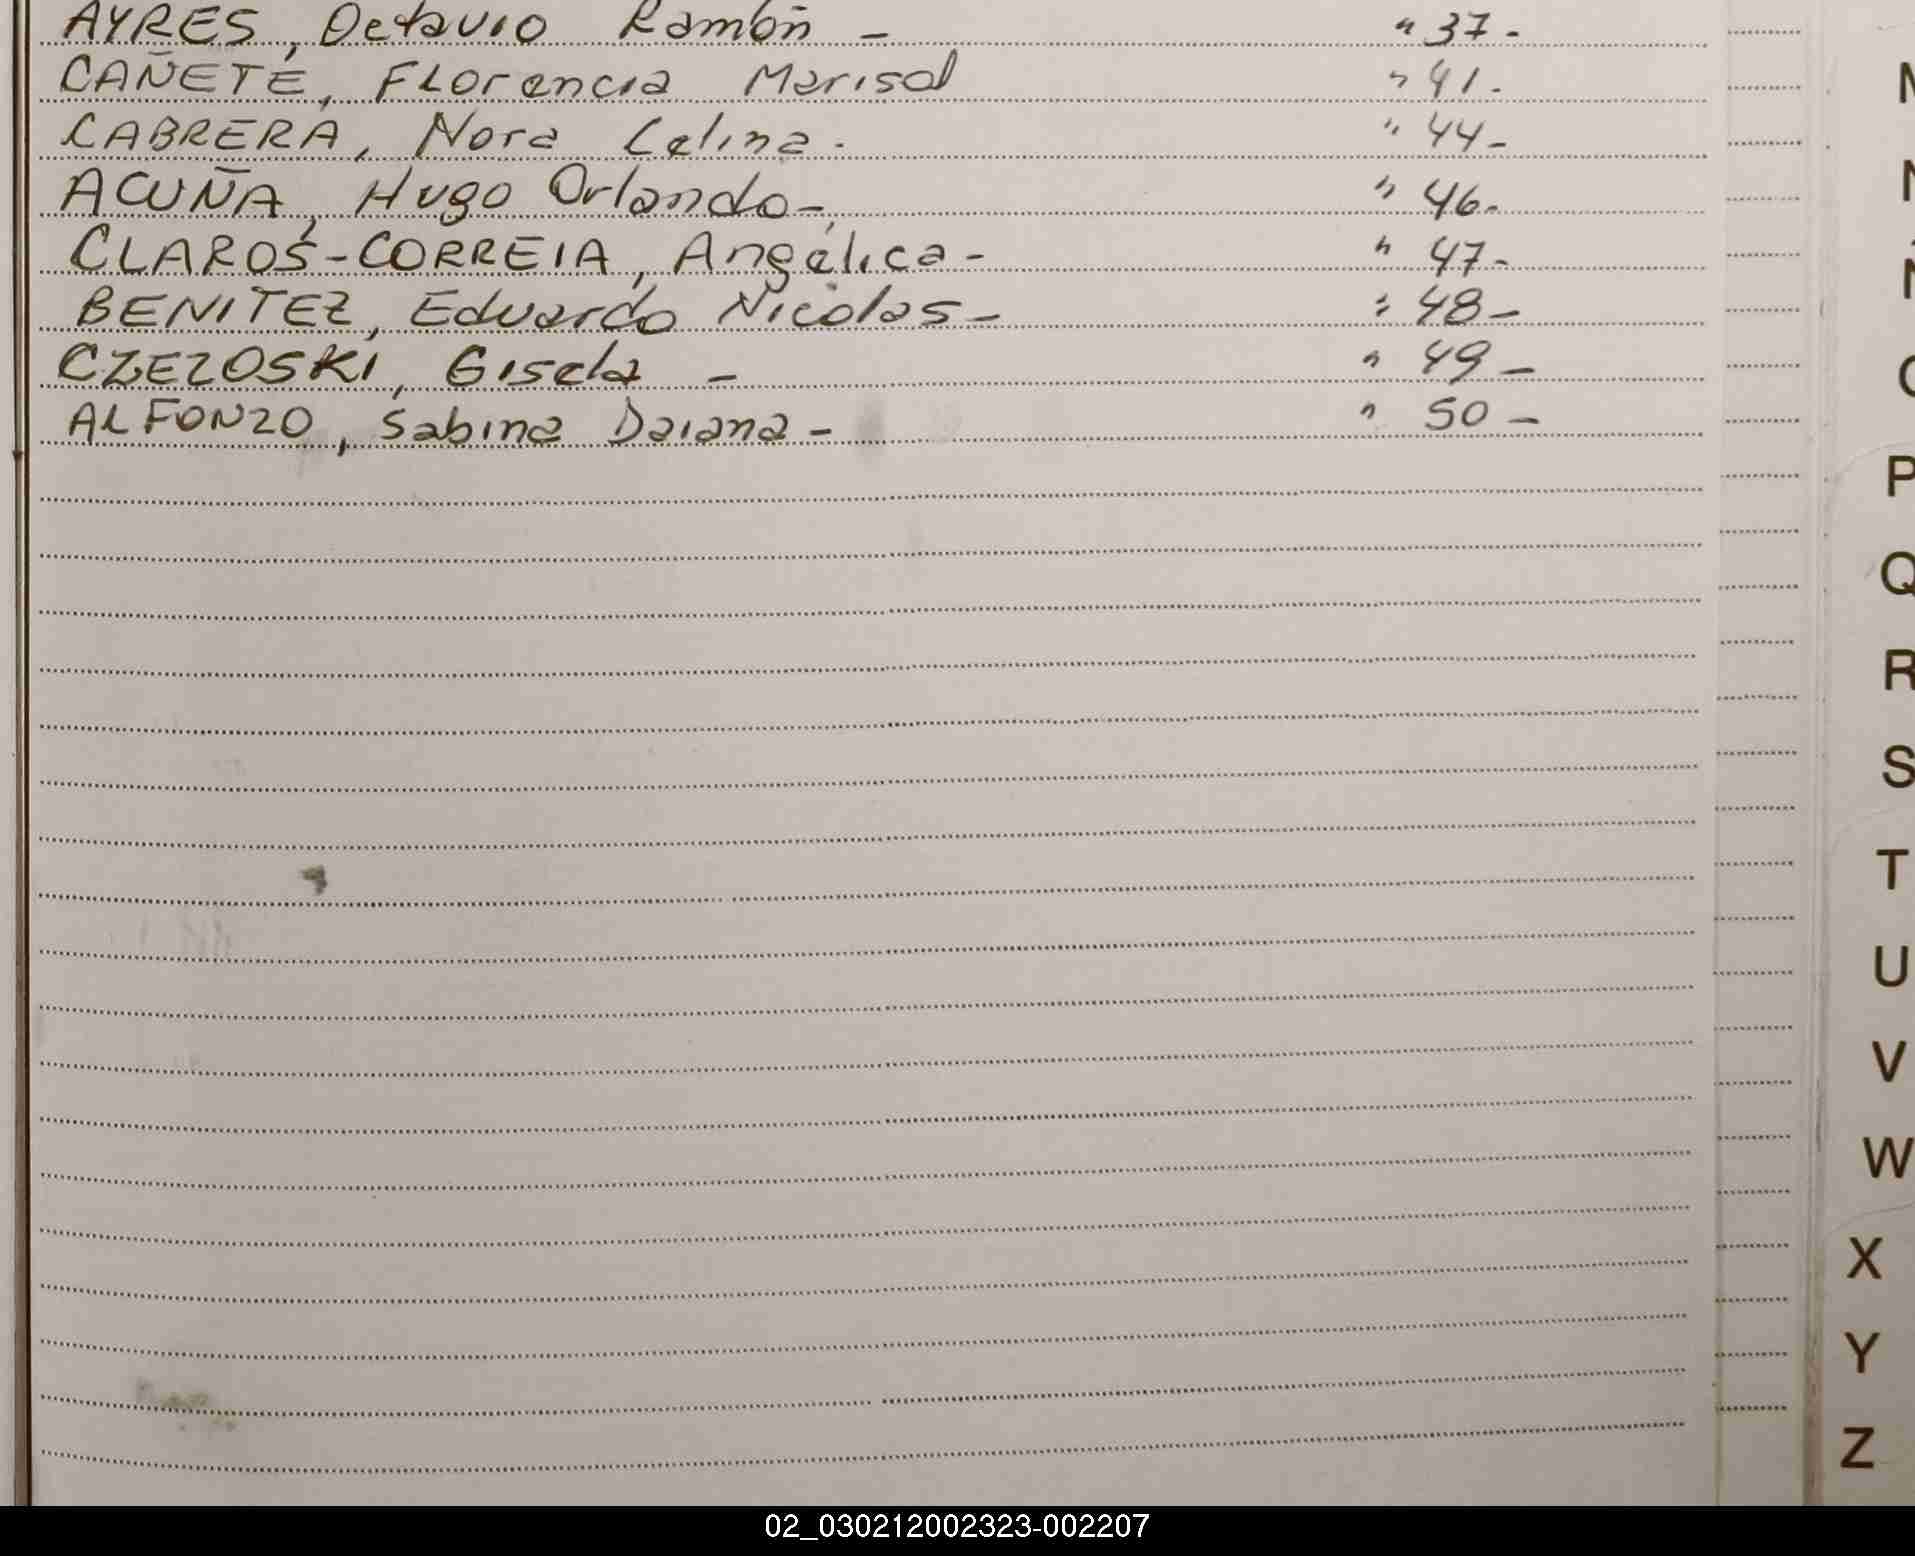 AYRES, Octavio Ramón - " 37-
CAÑETE, Florencia Marisol " 41-
CABRERA, Nora Celina- " 44-
ACUÑA, Hugo Orlando- " 46-
CLAROS-CORREIA, Angélica- " 47-
BENITEZ, Eduardo Nicolas- " 48-
CZEZOSKI, Gisela - " 49-
ALFONZO, Sabina Daiana- " 50-
P
Q
R
S
T
U
V
W
X
Y
Z
02_030212002323-002207